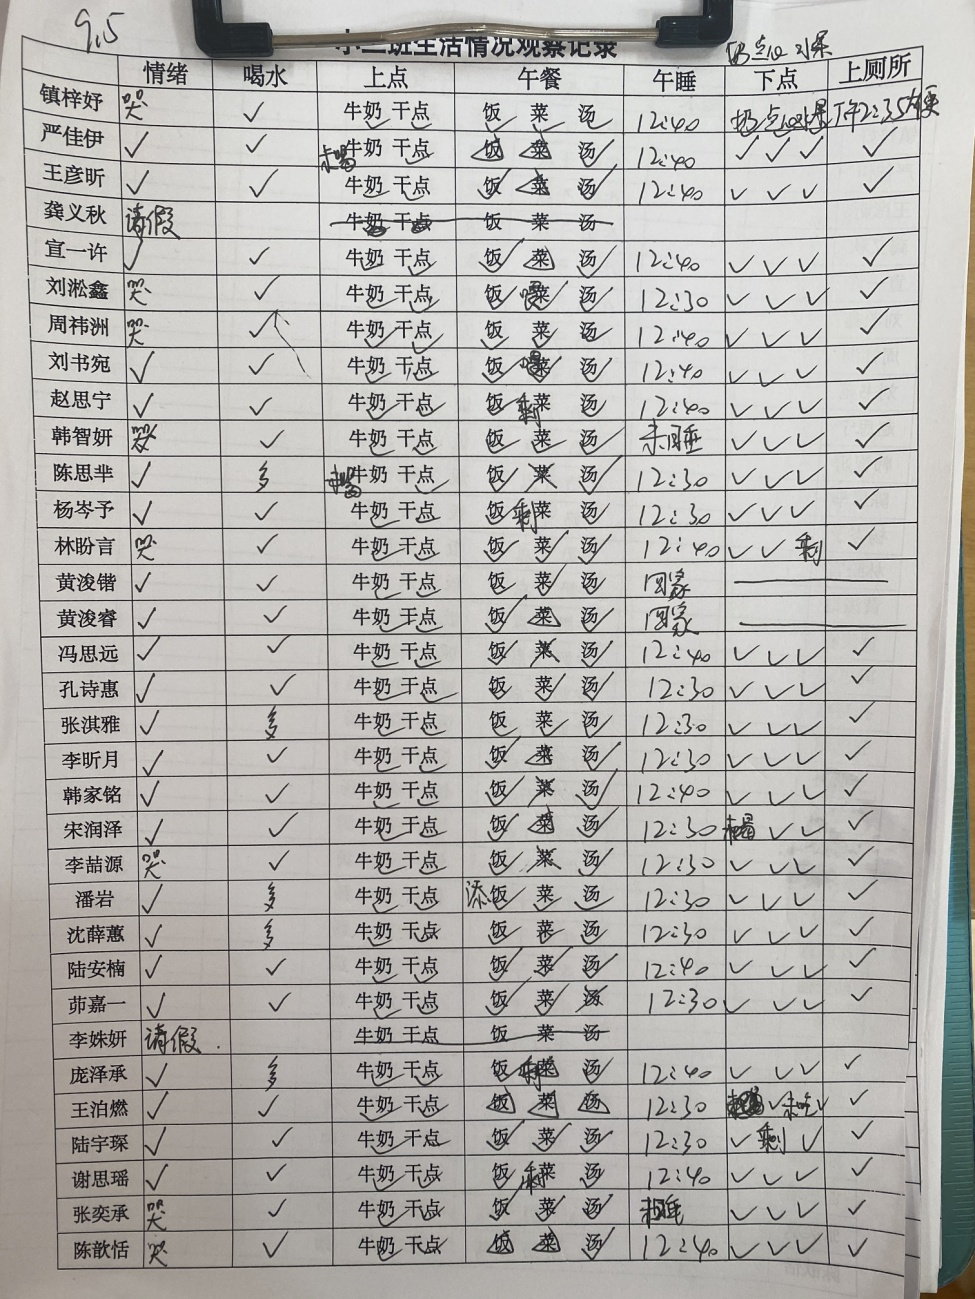 9.5
小二班生活情况观察记录
奶 点心 水果
情绪 喝水 上点 午餐 午睡 下点 上厕所
镇梓妤 哭 ✓ 牛奶 干点 饭 菜 汤 12:40 奶 点心 水果 下午2:35大便
严佳伊 ✓ ✓ 未喝 牛奶 干点 饭 菜 汤 12:40 ✓ ✓ ✓ ✓
王彦昕 ✓ ✓ 牛奶 干点 饭 菜 汤 12:40 ✓ ✓ ✓ ✓
龚义秋 请假 牛奶 干点 饭 菜 汤
宣一许 ✓ ✓ 牛奶 干点 饭 菜 汤 12:40 ✓ ✓ ✓ ✓
刘淞鑫 哭 ✓ 牛奶 干点 饭 菜 汤 12:30 ✓ ✓ ✓ ✓
周祎洲 哭 ✓ 牛奶 干点 饭 菜 汤 12:40 ✓ ✓ ✓ ✓
刘书宛 ✓ ✓ 牛奶 干点 饭 菜 汤 12:40 ✓ ✓ ✓ ✓
赵思宁 ✓ ✓ 牛奶 干点 饭 剩 菜 汤 12:40 ✓ ✓ ✓ ✓
韩智妍 哭 ✓ 牛奶 干点 饭 菜 汤 未睡 ✓ ✓ ✓ ✓
陈思芈 ✓ 多 未喝 牛奶 干点 饭 菜 汤 12:30 ✓ ✓ ✓ ✓
杨岑予 ✓ ✓ 牛奶 干点 饭 剩 菜 汤 12:30 ✓ ✓ ✓ ✓
林盼言 哭 ✓ 牛奶 干点 饭 菜 汤 12:40 ✓ ✓ 剩 ✓
黄浚锴 ✓ ✓ 牛奶 干点 饭 菜 汤 回家
黄浚睿 ✓ ✓ 牛奶 干点 饭 菜 汤 回家
冯思远 ✓ ✓ 牛奶 干点 饭 菜 汤 12:40 ✓ ✓ ✓ ✓
孔诗惠 ✓ ✓ 牛奶 干点 饭 菜 汤 12:30 ✓ ✓ ✓ ✓
张淇雅 ✓ 多 牛奶 干点 饭 菜 汤 12:30 ✓ ✓ ✓ ✓
李昕月 ✓ ✓ 牛奶 干点 饭 菜 汤 12:30 ✓ ✓ ✓ ✓
韩家铭 ✓ ✓ 牛奶 干点 饭 菜 汤 12:40 ✓ ✓ ✓ ✓
宋润泽 ✓ ✓ 牛奶 干点 饭 菜 汤 12:30 未喝 ✓ ✓ ✓
李喆源 哭 ✓ 牛奶 干点 饭 菜 汤 12:30 ✓ ✓ ✓ ✓
潘岩 ✓ 多 牛奶 干点 添 饭 菜 汤 12:30 ✓ ✓ ✓ ✓
沈薛蕙 ✓ 多 牛奶 干点 饭 菜 汤 12:30 ✓ ✓ ✓ ✓
陆安楠 ✓ ✓ 牛奶 干点 饭 菜 汤 12:40 ✓ ✓ ✓ ✓
茆嘉一 ✓ ✓ 牛奶 干点 饭 菜 汤 12:30 ✓ ✓ ✓ ✓
李姝妍 请假. 牛奶 干点 饭 菜 汤
庞泽承 ✓ 多 牛奶 干点 饭 剩 菜 汤 12:40 ✓ ✓ ✓ ✓
王泊燃 ✓ ✓ 牛奶 干点 饭 菜 汤 12:30 ✓ 未吃 ✓ ✓
陆宇琛 ✓ ✓ 牛奶 干点 饭 菜 汤 12:30 ✓ 剩 ✓ ✓
谢思瑶 ✓ ✓ 牛奶 干点 饭 剩 菜 汤 12:40 ✓ ✓ ✓ ✓
张奕承 哭 ✓ 牛奶 干点 饭 菜 汤 未睡 ✓ ✓ ✓ ✓
陈歆恬 哭 ✓ 牛奶 干点 饭 菜 汤 12:40 ✓ ✓ ✓ ✓